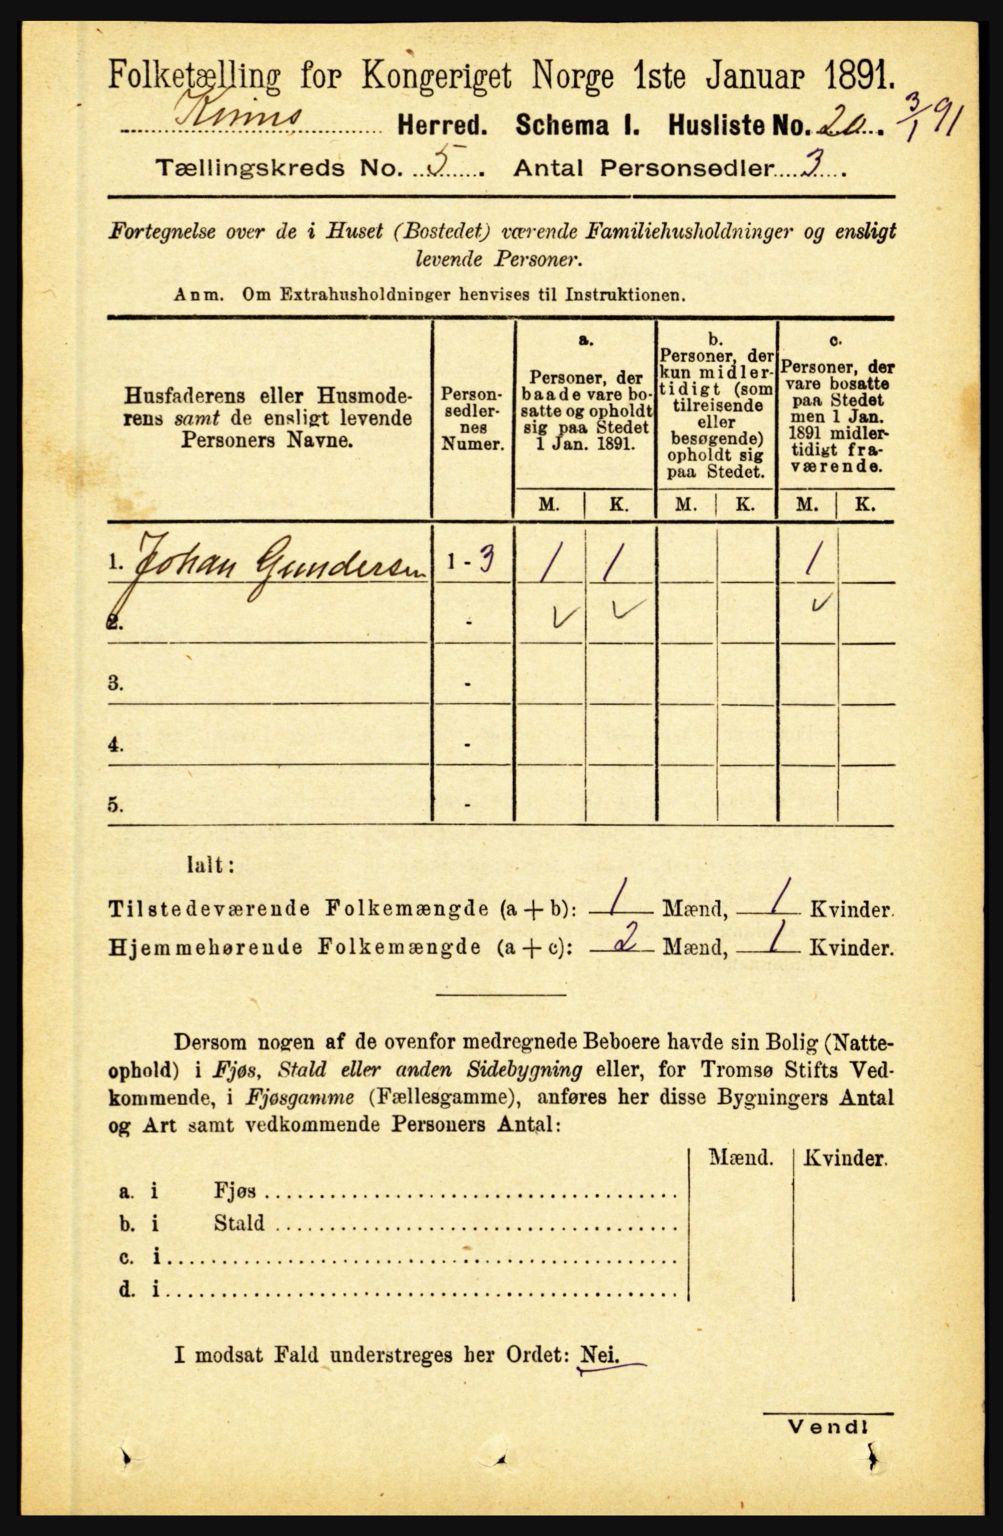 Folketælling for Kongeriget Norge 1ste Januar 1891.
Kinns Herred. Schema I. Husliste No. 20. 3/1 91
Tællingskreds No. 5. Antal Personsedler 3.
Fortegnelse over de i Huset (Bostedet) værende Familiehusholdninger og ensligt
levende Personer.
Anm. Om Extrahusholdninger henvises til Instruktionen.
Husfaderens eller Husmode-
rens samt de ensligt levende
Personers Navne.
Person-
sedler-
nes
Numer.
a.
Personer, der
baade vare bo-
satte og opholdt
sig paa Stedet
1 Jan. 1891.
b.
Personer, der
kun midler-
tidigt (som
tilreisende
eller
besøgende)
opholdt sig
paa Stedet.
c.
Personer, der
vare bosatte
paa Stedet
men 1 Jan.
1891 midler-
tidigt fra-
værende.
M. K. M. K. M. K.
1. Johan Gundersen 1 - 3 1 1 1
2. - ✓ ✓ ✓
3. -
4. -
5. -
Ialt:
Tilstedeværende Folkemængde (a + b): 1 Mænd, 1 Kvinder.
Hjemmehørende Folkemængde (a + c): 2 Mænd, 1 Kvinder.
Dersom nogen af de ovenfor medregnede Beboere havde sin Bolig (Natte-
ophold) i Fjøs, Stald eller anden Sidebygning eller, for Tromsø Stifts Ved-
kommende, i Fjøsgamme (Fællesgamme), anføres her disse Bygningers Antal
og Art samt vedkommende Personers Antal:
Mænd. Kvinder.
a. i Fjøs
b. i Stald
c. i
d. i
I modsat Fald understreges her Ordet: Nei.
Vend!